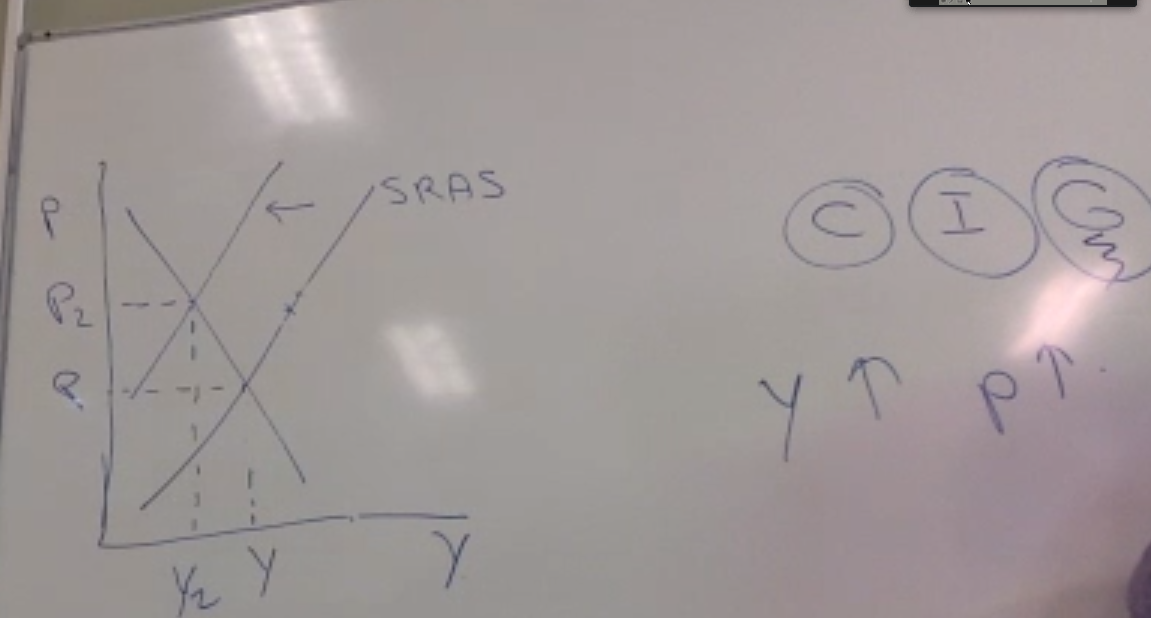 P
SRAS
←
P₂
P₁
Y₂ Y Y
C I G
Y ↑ P ↑